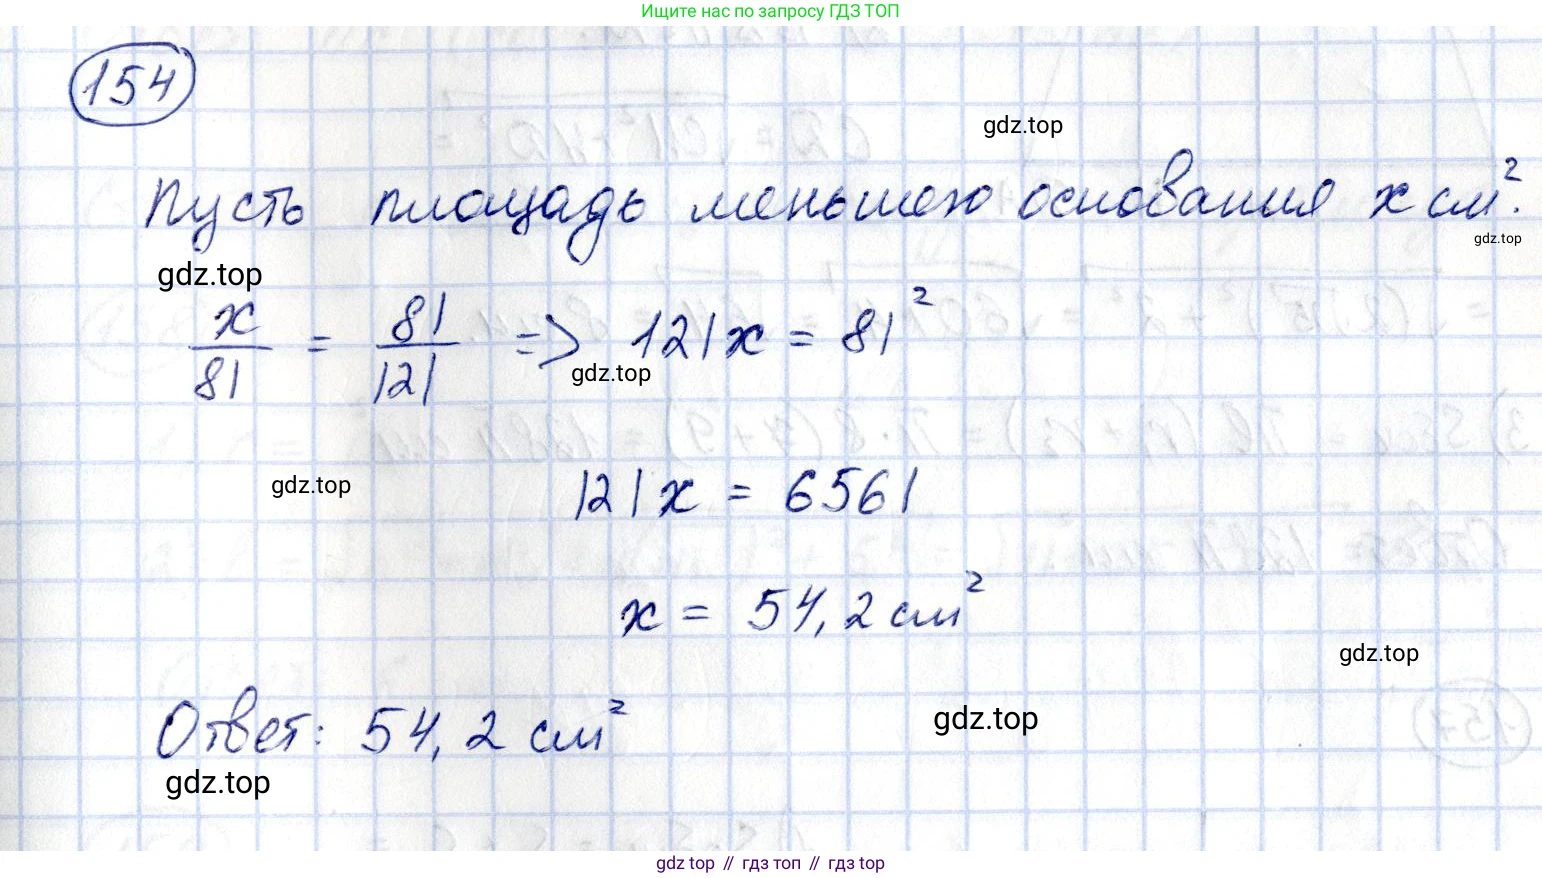 Ищите нас по запросу ГДЗ ТОП
154
gdz.top
Пусть площадь меньшего основания x см².
gdz.top
gdz.top
x/81 = 81/121 => 121x = 81²
gdz.top
gdz.top
121x = 6561
x = 54,2 см²
gdz.top
Ответ: 54,2 см²
gdz.top
gdz.top
gdz.top // гдз топ // гдз top